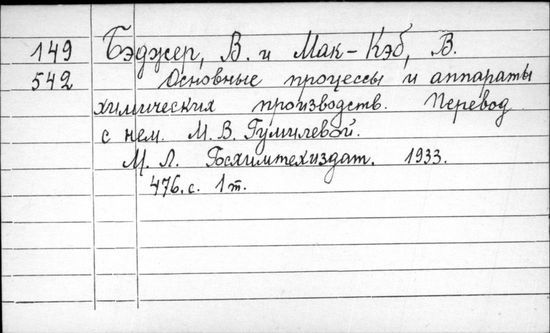 149 Бэджер, В. и Мак-Кэб, В.
542 Основные процессы и аппараты
химических производств. Перевод
с нем. М. В. Гумилевой.
М. Л. Госхимтехиздат. 1933.
476.с. 1 т.